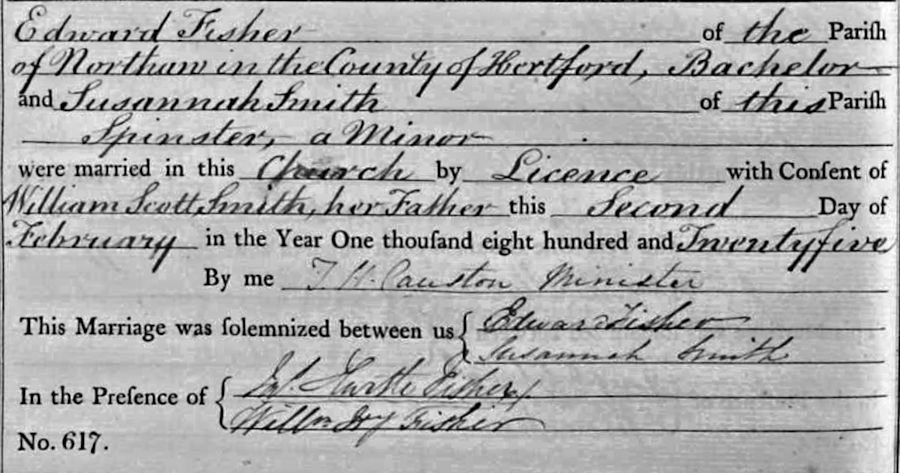 Edward Fisher of the Pariſh
of Northaw in the County of Hertford, Bachelor
and Susannah Smith of this Pariſh
Spinster, a Minor
were married in this Church by Licence with Conſent of
William Scott Smith, her Father this Second Day of
February in the Year One thouſand eight hundred and Twentyfive
By me T. H. Causton Minister
This Marriage was ſolemnized between us { Edward Fisher
Susannah Smith
In the Preſence of { Fisher
Fisher
No. 617.